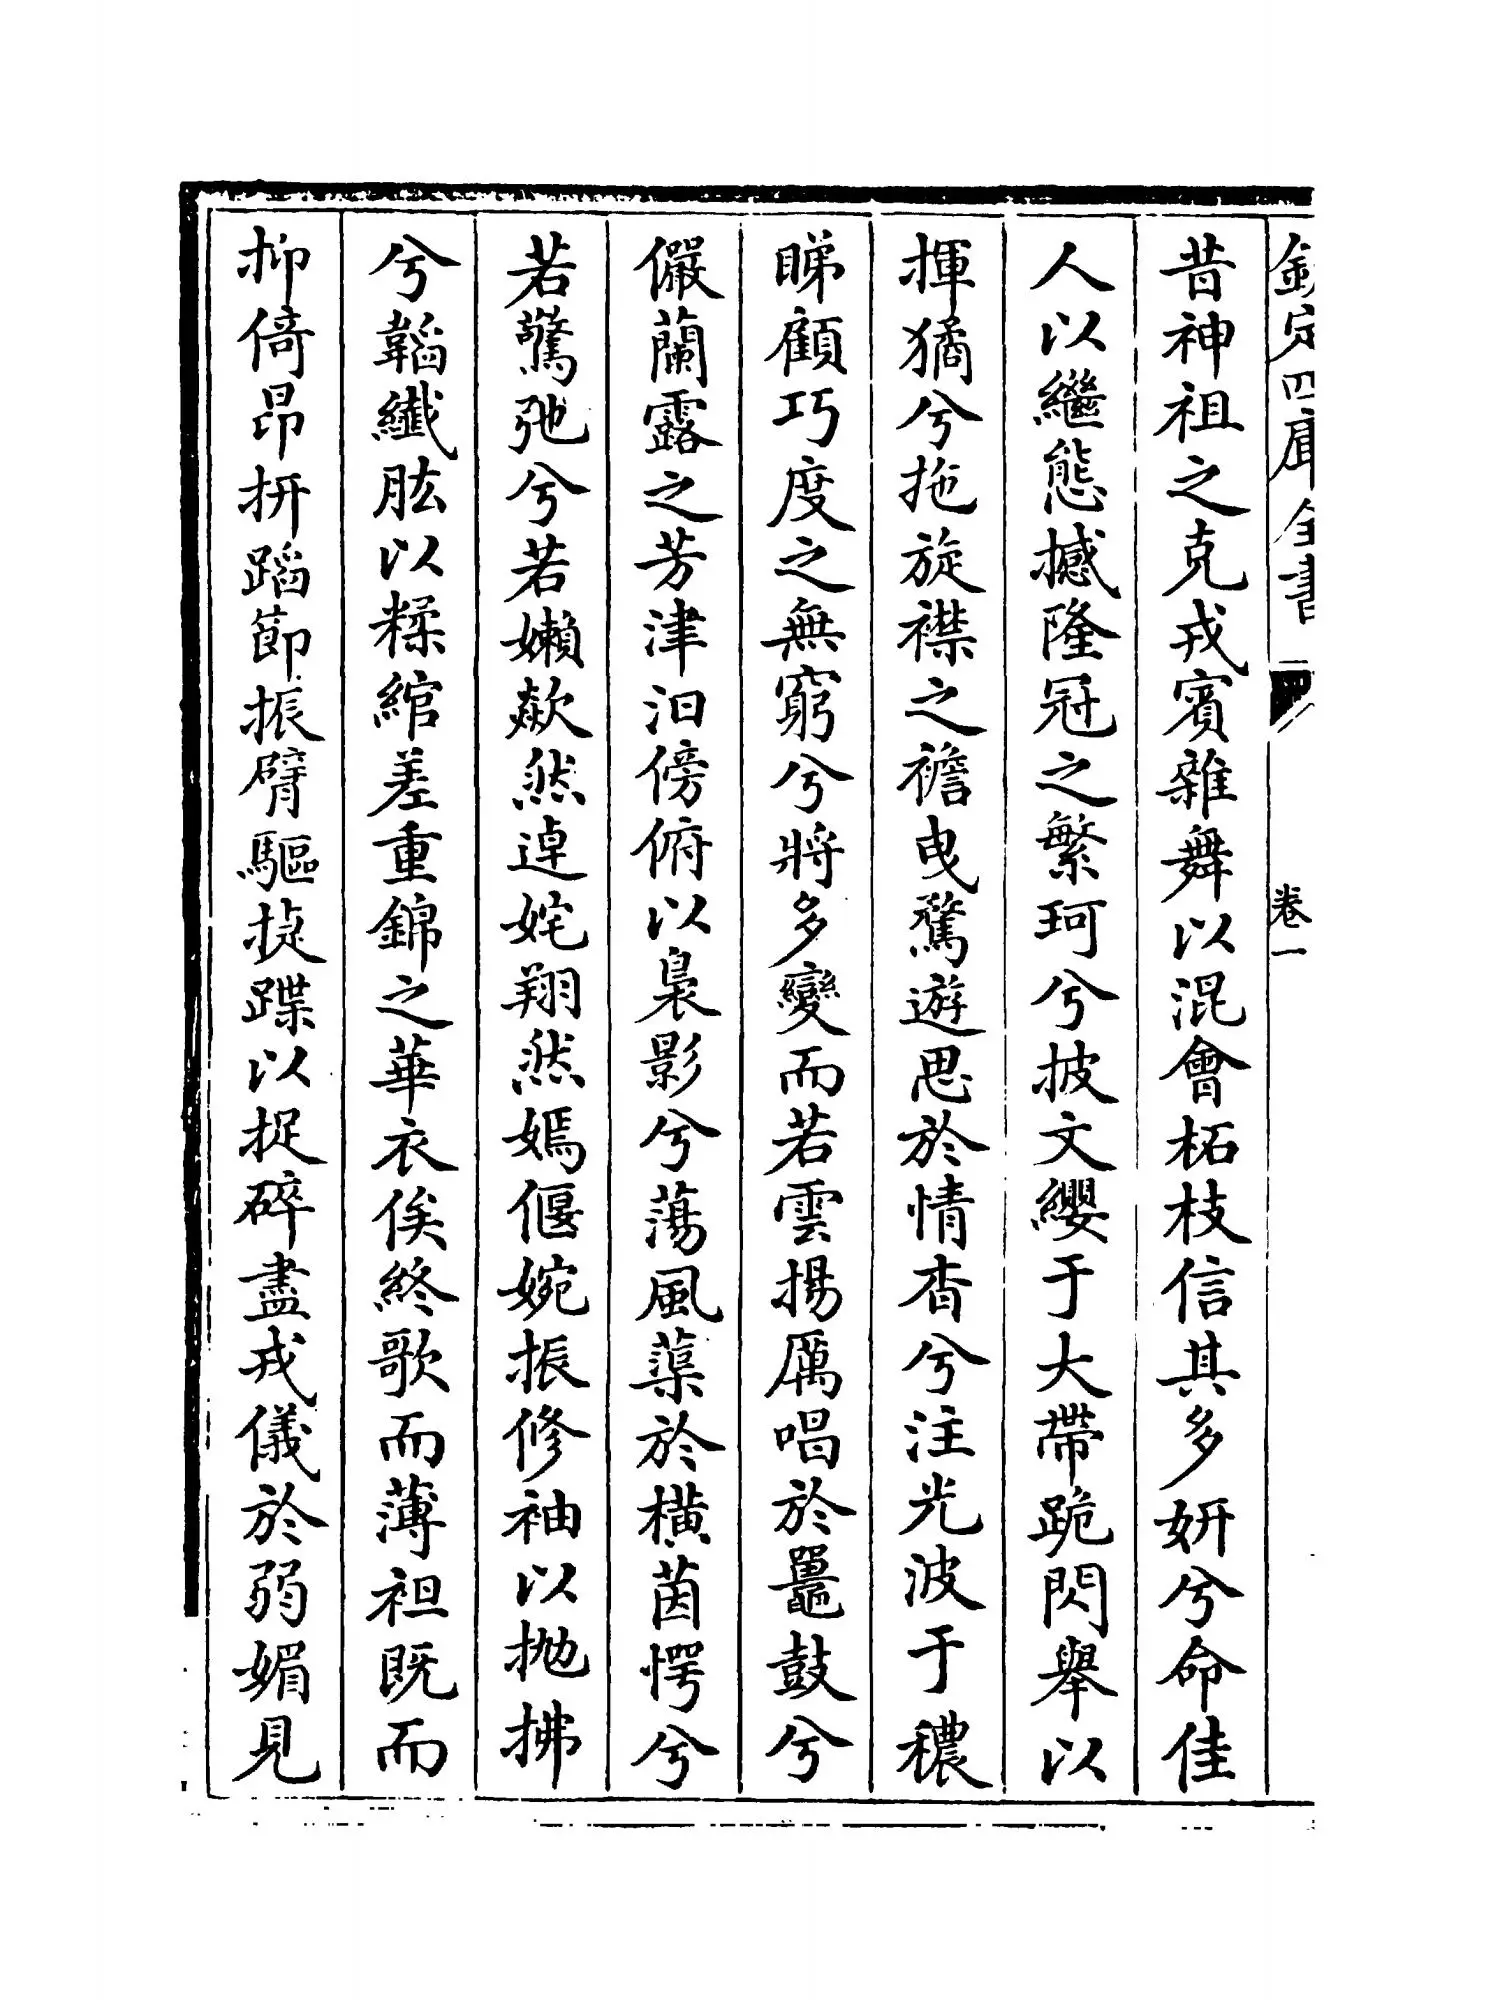 欽定四庫全書
卷一
昔神祖之克戎賓雜舞以混會柘枝信其多妍兮命佳
人以繼態撼隆冠之繁珂兮披文纓于大帶跪閃舉以
揮獝兮拖旋襟之襜曳驚遊思於情杳兮注光波于穠
睇顧巧度之無窮兮將多變而若雲揚厲唱於鼉鼓兮
儼蘭露之芳津汩傍俯以裊影兮蕩風蕖於橫茵愕兮
若驚弛兮若嬾歘然逴姹翔然嫣偃婉振修袖以拋拂
兮韜纖肱以糅綰差重錦之華衣俟終歌而薄袒既而
抑倚昂拼蹈節振臂驅捉蹀以捉碎盡戎儀於弱媚見